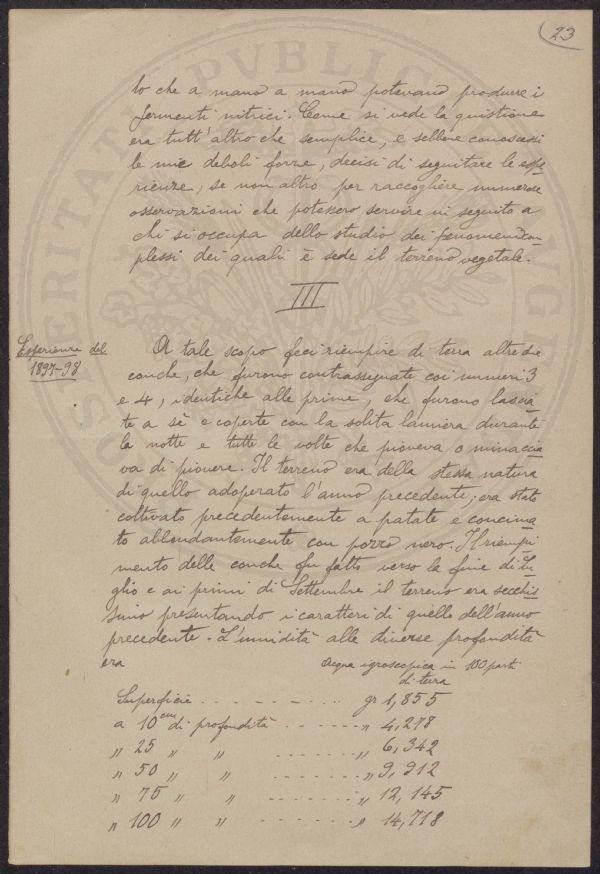 23
lo che a mano a mano potevano produrre i
fermenti nitrici. Come si vede la quistione
era tutt'altro che semplice, e sebbene conoscessi
le mie deboli forze, decisi di seguitare le espe-
rienze, se non altro per raccogliere numerose
osservazioni che potessero servire in seguito a
chi si occupa dello studio dei fenomeni com-
plessi dei quali è sede il terreno vegetale.
III
Esperienze del
1897-98
A tale scopo feci riempire di terra altre due
conche, che furono contrassegnate coi numeri 3
e 4, identiche alle prime, che furono lascia-
te a sè e coperte con la solita lamiera durante
la notte e tutte le volte che pioveva o minaccia-
va di piovere. Il terreno era della stessa natura
di quello adoperato l'anno precedente; era stato
coltivato precedentemente a patate e concima-
to abbondantemente con pozzo nero. Il riempi-
mento delle conche fu fatto verso la fine di Lu-
glio e ai primi di Settembre il terreno era secchis-
simo presentando i caratteri di quello dell'anno
precedente. L'umidità alle diverse profondità
era
Acqua igroscopica in 100 parti
di terra
Superficie . . . . . . . . . gr 1,855
a 10 cm di profondità . . . . . . „ 4,278
„ 25 „ „ . . . . . . . „ 6,342
„ 50 „ „ . . . . . . . „ 9,912
„ 75 „ „ . . . . . . . „ 12,145
„ 100 „ „ . . . . . . . „ 14,718